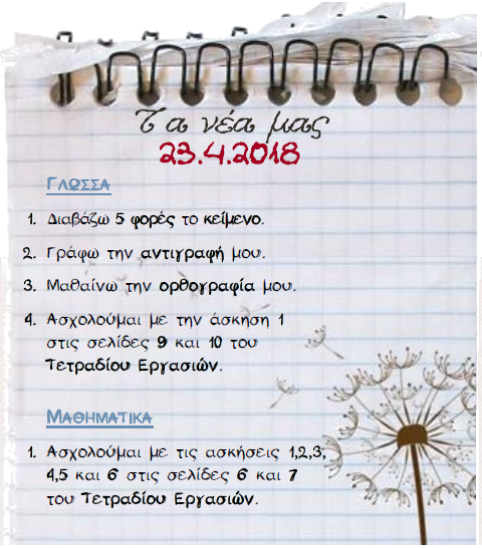 Τα νέα μας
23.4.2018
ΓΛΩΣΣΑ
1. Διαβάζω 5 φορές το κείμενο.
2. Γράφω την αντιγραφή μου.
3. Μαθαίνω την ορθογραφία μου.
4. Ασχολούμαι με την άσκηση 1
στις σελίδες 9 και 10 του
Τετραδίου Εργασιών.
ΜΑΘΗΜΑΤΙΚΑ
1. Ασχολούμαι με τις ασκήσεις 1,2,3,
4,5 και 6 στις σελίδες 6 και 7
του Τετραδίου Εργασιών.